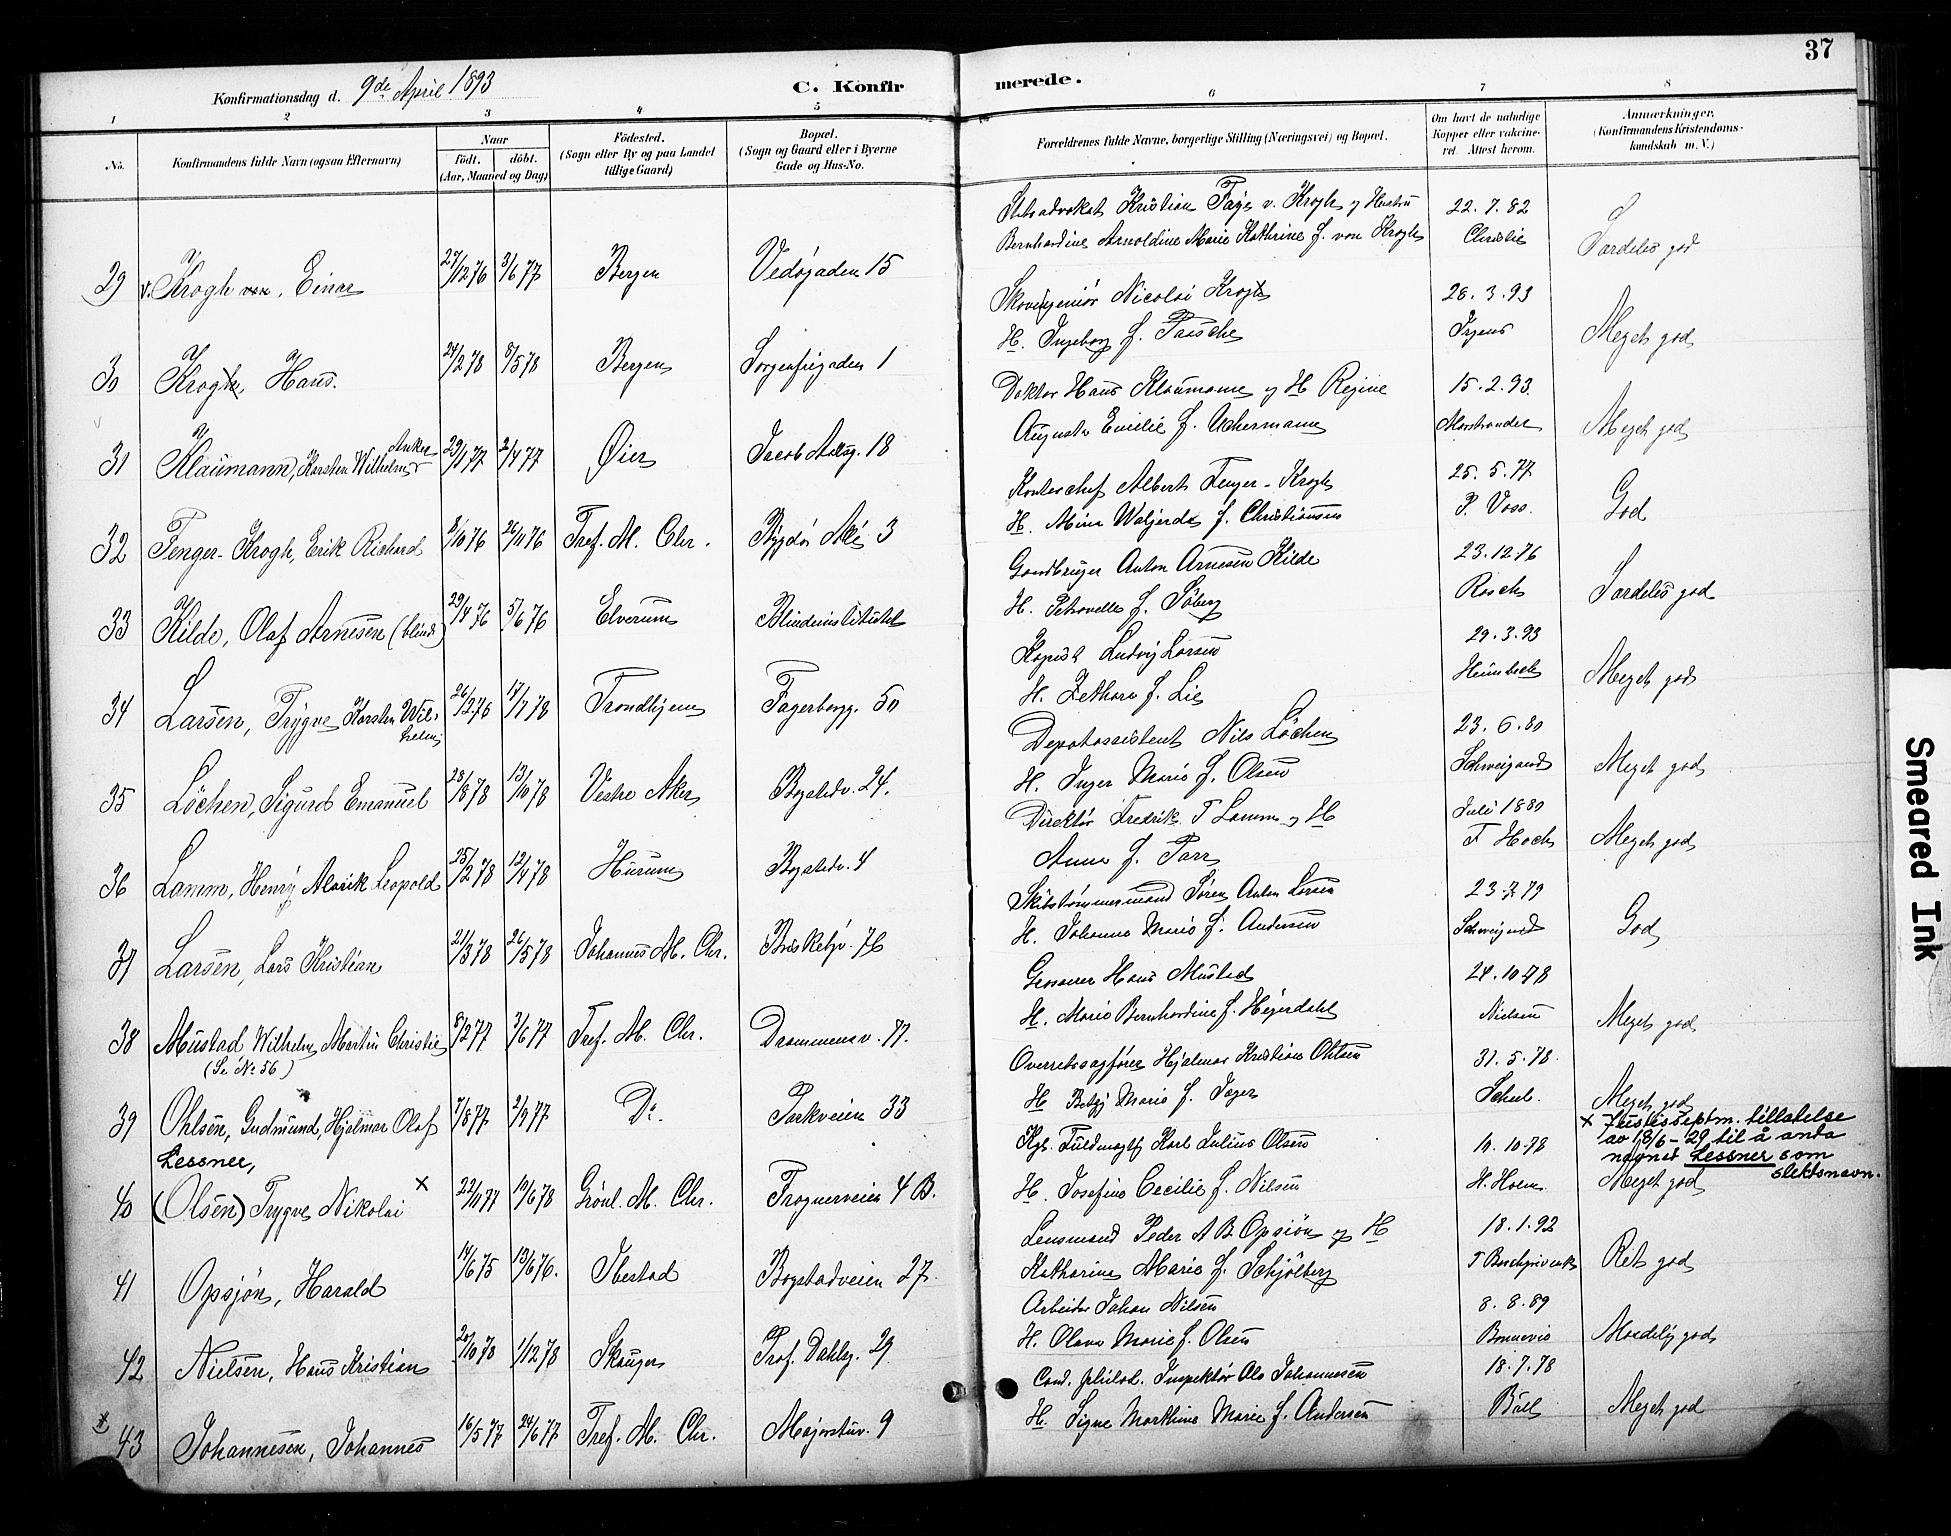 37
Konfirmationsdag d. 9de April 1893
C. Konfirmerede.
1 2 3 4 5 6 7 8
No.
Konfirmandens fulde Navn (ogsaa Efternavn)
Naar
Födt. döbt.
(Aar, Maaned og Dag)
Födested.
(Sogn eller By og paa Landet
tillige Gaard)
Bopæl.
(Sogn og Gaard eller i Byerne
Gade og Hus-No.
Forældrenes fulde Navne, borgerlige Stilling (Næringsvei) og Bopæl.
Om havt de naturlige
Kopper eller vakcine-
ret. Attest herom.
Anmærkninger.
(Konfirmandens Kristendoms-
kundskab m. V.)
Kristian Faye v. Krogh og Hustru 22.7.82
Bernhardine Arnoldine Marie Kathrine f. von Krogh Christie Særdeles god
29 v. Krogh von, Einar 27/12 76 3/6 77 Bergen 15
Nicolai Krogh 28.3.93
H. Ingeborg f. Pasche Irgens Meget god
30 Krogh, Hans. 24/2 78 8/5 78 Bergen Sorgenfrigaden 1
Doktor Hans Klaumann og H Regine 15.2.93.
Augusta Emilie f. Uchermann Marstrander Meget god
31 Klaumann, Karsten Wilhelm Anker 29/1 77 2/4 77 Øier Jacob Aalsg. 18
Kontorchef Albert Fenger-Krogh 25.5.77
H. f. Christiansen P. Voss. God
32 Fenger-Krogh, Erik Richard 8/10 76 26/11 76 Tref. M. Chr. Bygdø Allé 3
Gaardbruger Anton Arnesen Kilde 23.12.76
H. Petronelle f. Söberg Rosch Særdeles god
33 Kilde, Olaf Arnesen (blind) 29/4 76 5/6 76 Elverum Blindeinstitutet
Kopist Ludvig Larsen 29.3.93
H. f. Lie Heimbeck Meget god
34 Larsen, Trygve Karsten Wilhelm 26/12 76 17/7 78 Trondhjem Fagerborgg. 50
Depotassistent Nils Löchen 23.6.80
H. Inger Marie f. Olsen Schweigaard Meget god
35 Löchen, Sigurd Emanuel 23/8 78 13/10 78 Vestre Aker Bogstadv. 24.
Direktör Fredrik T Lamm og H Juli 1880
Anna f. Parr F Hoch Meget god
36 Lamm, Henry Alarik Leopold 25/2 78 12/4 78 Hurum Bogstadv. 4
Skibstömmermand Sören Anton Larsen 23.7.79
H. Johanne Marie f. Andersen Schweigaard God
37 Larsen, Lars Kristian 21/3 78 26/5 78 Johannes M. Chr. Briskebyv. 76
Grosserer Hans Mustad 24.10.78
H. Marie Bernhardine f. Heyerdahl Nielsen Meget god
38 Mustad Wilhelm Martin Christie 8/2 77 3/6 77 Tref. M. Chr. Drammensv. 77.
(Se No 56)
Overretssagförer Hjalmar Kristian Ohlsen 31.5.78.
H Betzy Marie f. Jager Schub. Meget god
39 Ohlsen, Gudmund, Hjalmar Olaf 7/8 77 2/9 77 Do. Parkveien 33
x Justisdeptm. tillatelse
av 18/6-29 til å anta
navnet Lessner som
slektsnavn.
Kgl. Fuldmægtig Karl Julius Olsen 10.10.78
H. Josefine Cecilie f. Nilsen H. Holm Meget god
Lessner,
40 (Olsen) Trygve Nikolai x 22/11 77 10/6 78 Grönl. M. Chr. Frognerveien 4 B.
Lensmand Peder A B Opsjön og H 18.1.92
Katharine Marie f. Schjölberg Ret god
41 Opsjön, Harald 14/6 75 13/6 76. Ibestad Bogstadveien 27.
Arbeider Johan Nilsen 8.8.89
H. Olava Marie f. Olsen Bonnevie Maadelig god
42 Nielsen, Hans Kristian 20/10 78 1/12 78 Skauger Prof. Dahlsg. 29
Cand. philol. Inspektör Ole Johannesen 18.7.78
H. Signe Marthine Marie f. Andersen Bull Meget god
43 Johannesen, Johannes 16/5 77 24/6 77 Tref. M. Chr. Majorstuv. 9
Smeared Ink